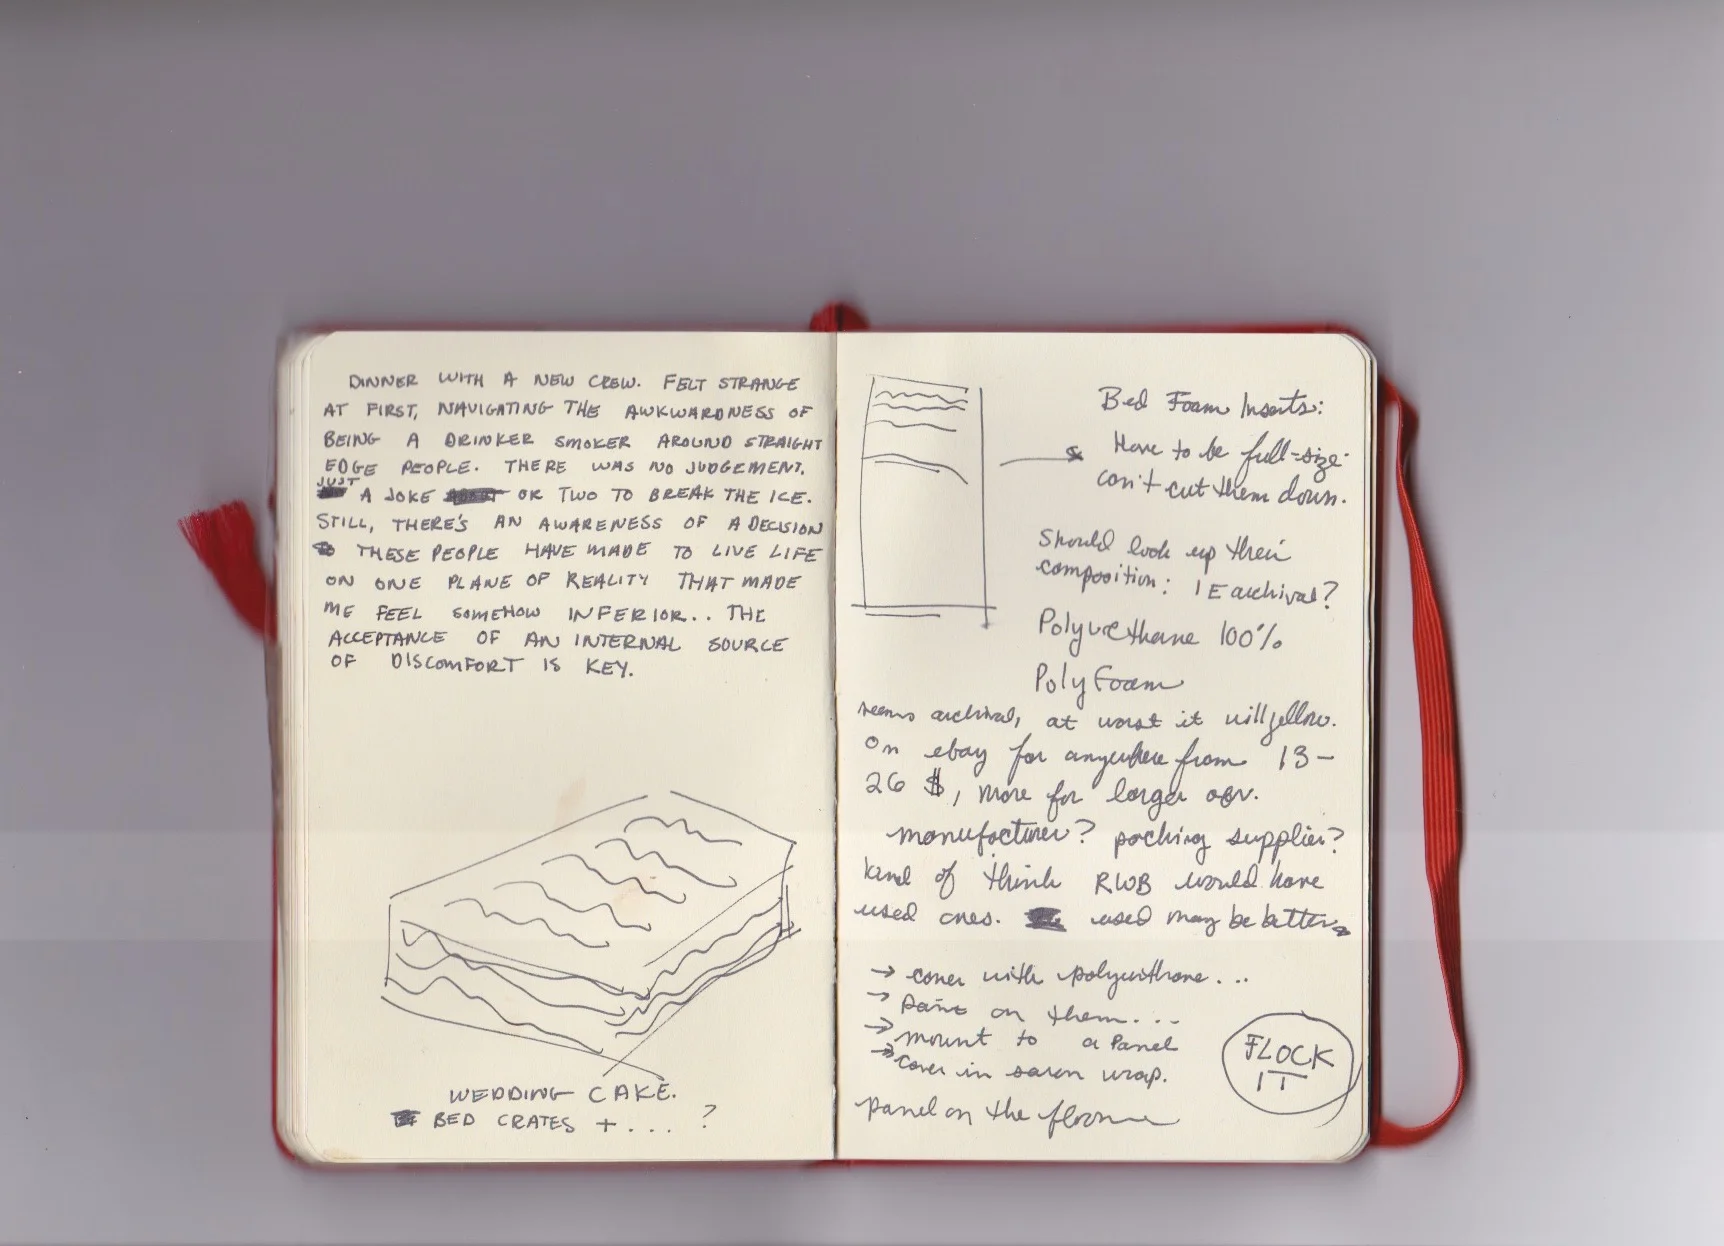 DINNER WITH A NEW CREW. FELT STRANGE
AT FIRST, NAVIGATING THE AWKWARDNESS OF
BEING A DRINKER SMOKER AROUND STRAIGHT
EDGE PEOPLE. THERE WAS NO JUDGEMENT.
JUST A JOKE OR TWO TO BREAK THE ICE.
STILL, THERE'S AN AWARENESS OF A DECISION
THESE PEOPLE HAVE MADE TO LIVE LIFE
ON ONE PLANE OF REALITY THAT MADE
ME FEEL SOMEHOW INFERIOR.. THE
ACCEPTANCE OF AN INTERNAL SOURCE
OF DISCOMFORT IS KEY.
WEDDING CAKE.
BED CRATES + ... ?
Bed Foam Inserts:
Have to be full-size-
can't cut them down.
Should look up their
composition: IE archival?
Polyurethane 100%
Poly Foam
seems archival, at worst it will yellow.
On ebay for anywhere from 13-
26 $, more for larger
manufacturer? packing supplier?
kind of think RWB would have
used ones. used may be better
→ cover with polyurethane...
→ paint on them...
→ mount to a Panel
→ cover in saran wrap.
FLOCK
IT
panel on the floor